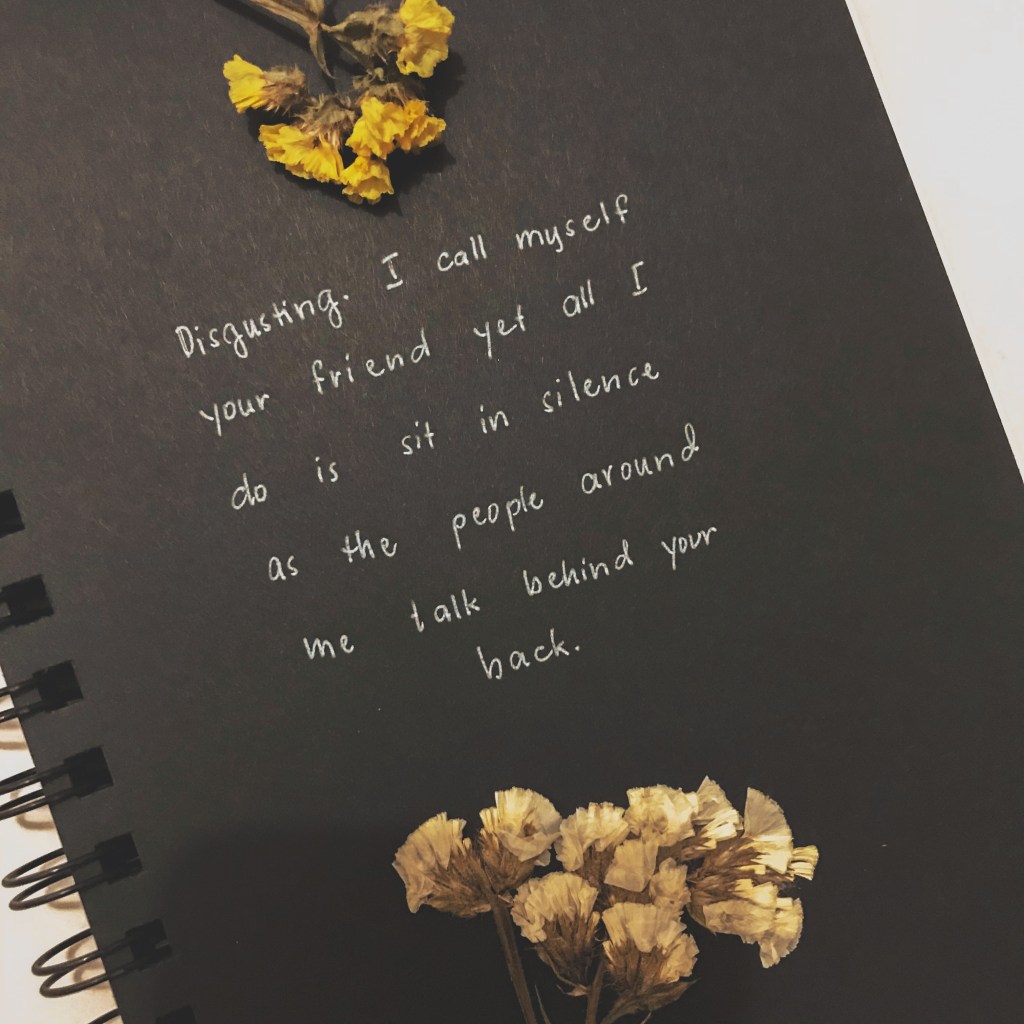 Disgusting. I call myself
your friend yet all I
do is sit in silence
as the people around
me talk behind your
back.